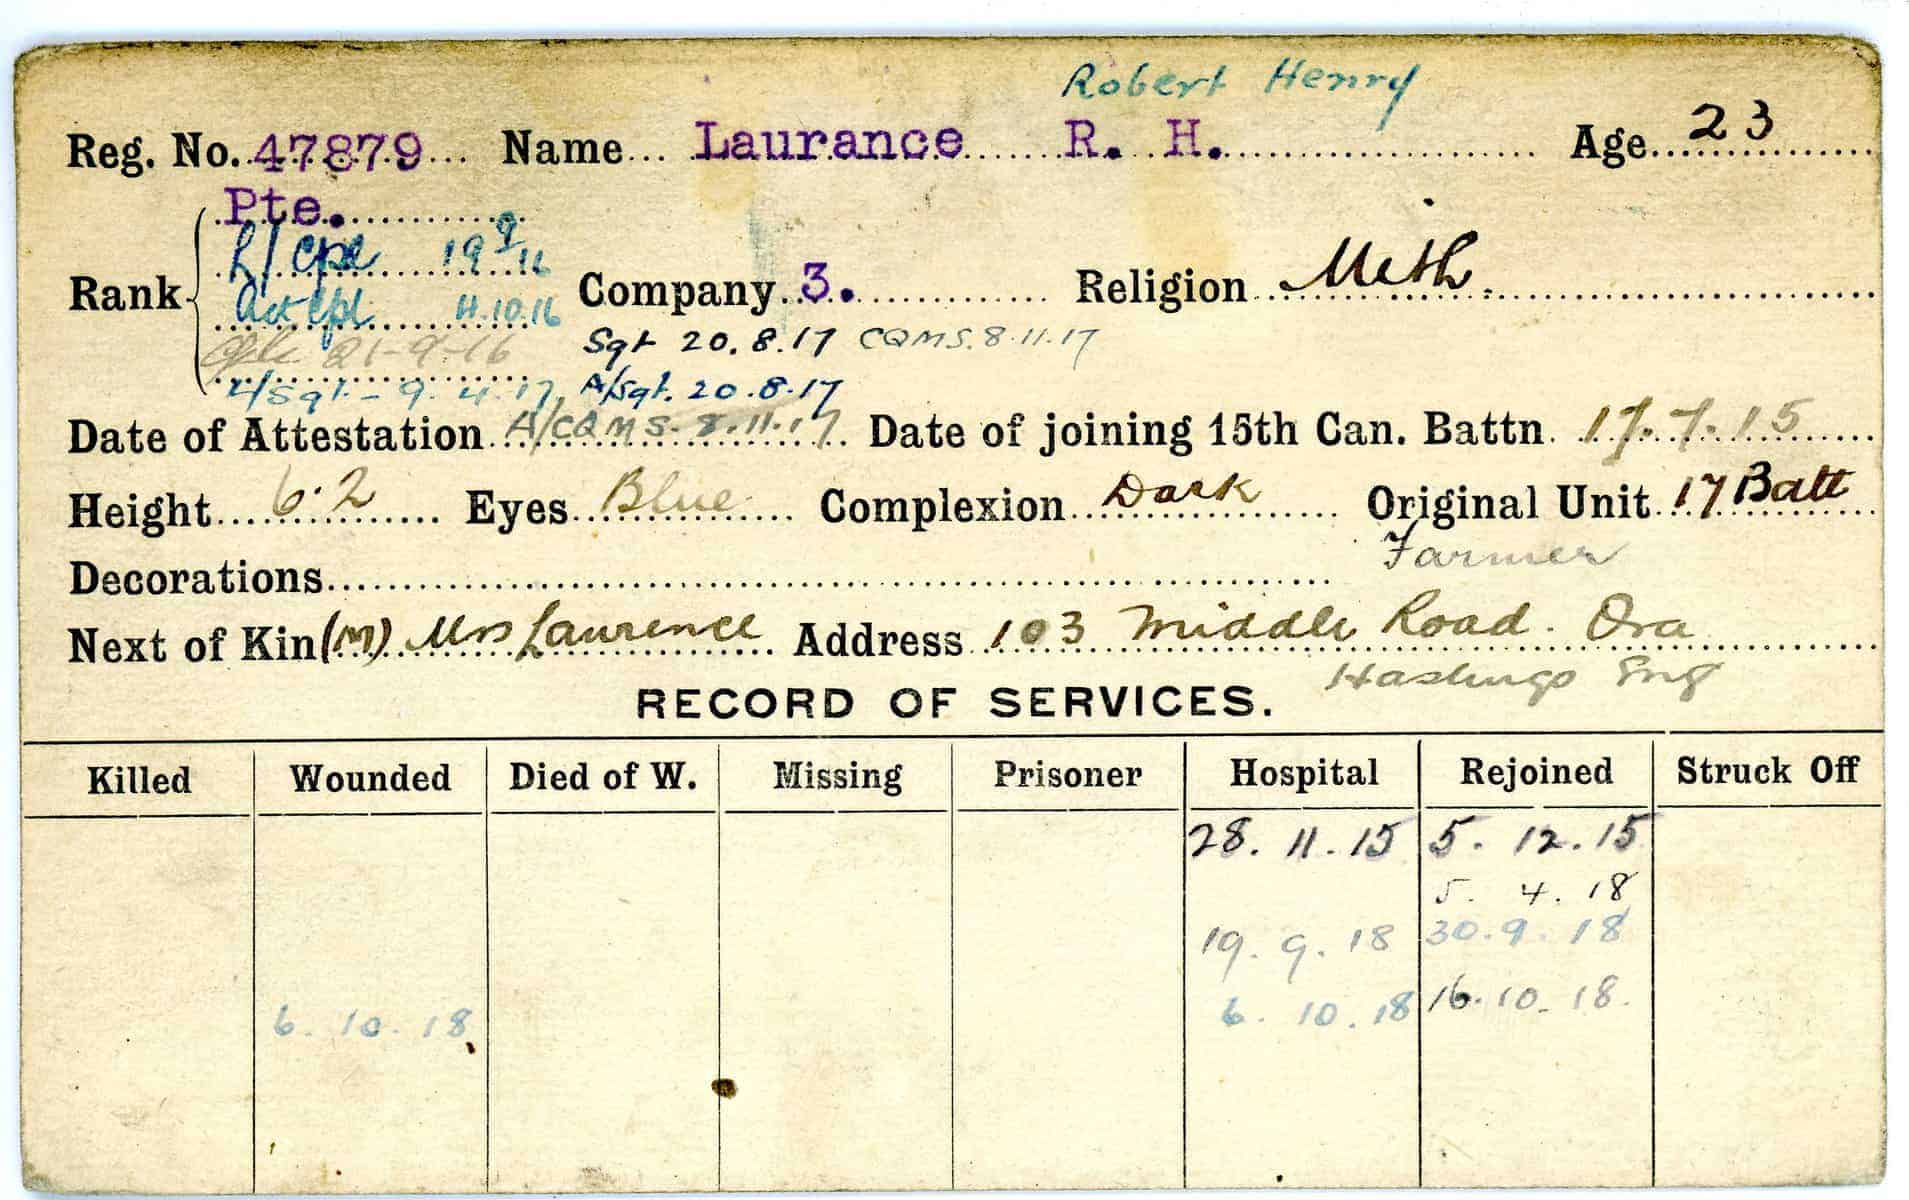 Robert Henry
Reg. No. 47879 Name Laurance R. H. Age 23
Pte.
L/Cpl 19 9/16
Rank Company 3. Religion Meth.
Act Cpl 11.10.16
Sgt 20.8.17 CQMS. 8.11.17
21-9-16
L/Sgt - 9.4.17 A/Sgt. 20.8.17
Date of Attestation A/CQMS. 8.11.17 Date of joining 15th Can. Battn. 17.7.15
Height 6.2 Eyes Blue Complexion Dark Original Unit 17 Batt
Farmer
Decorations
Next of Kin (M) Mrs Laurence Address 103 Middle Road. Ora
Hastings Eng
RECORD OF SERVICES.
Killed Wounded Died of W. Missing Prisoner Hospital Rejoined Struck Off
28. 11. 15 5. 12. 15
5. 4. 18
19. 9. 18 30. 9. 18
6. 10. 18 6. 10. 18 16. 10. 18.